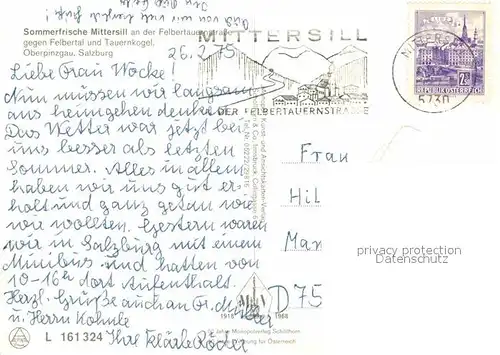 Sommerfrische Mittersill an der Felbertauernstraße
gegen Felbertal und Tauernkogel.
Oberpinzgau, Salzburg
26.2.75
MITTERSILL
AN DER FELBERTAUERNSTRASSE
MITTERSILL
5730
2
REPUBLIK ÖSTERREICH
Liebe Frau Wocke!
Nun müssen wir langsam
ans heimgehen denken.
Das Wetter war jetzt bei
uns besser als letzten
Sommer. Alles in allem
haben wir uns gut er-
holt und ganz getan wie
wir wollten. Gestern waren
wir in Salzburg mit einem
Minibus und hatten von
10-16h dort Aufenthalt.
Herzl. Grüße auch an Fr.
u. Herrn Kohnle
Ihre Kläre Röder
Frau
Hil
Man
D 75
privacy protection
Datenschutz
1918
1968
L 161324